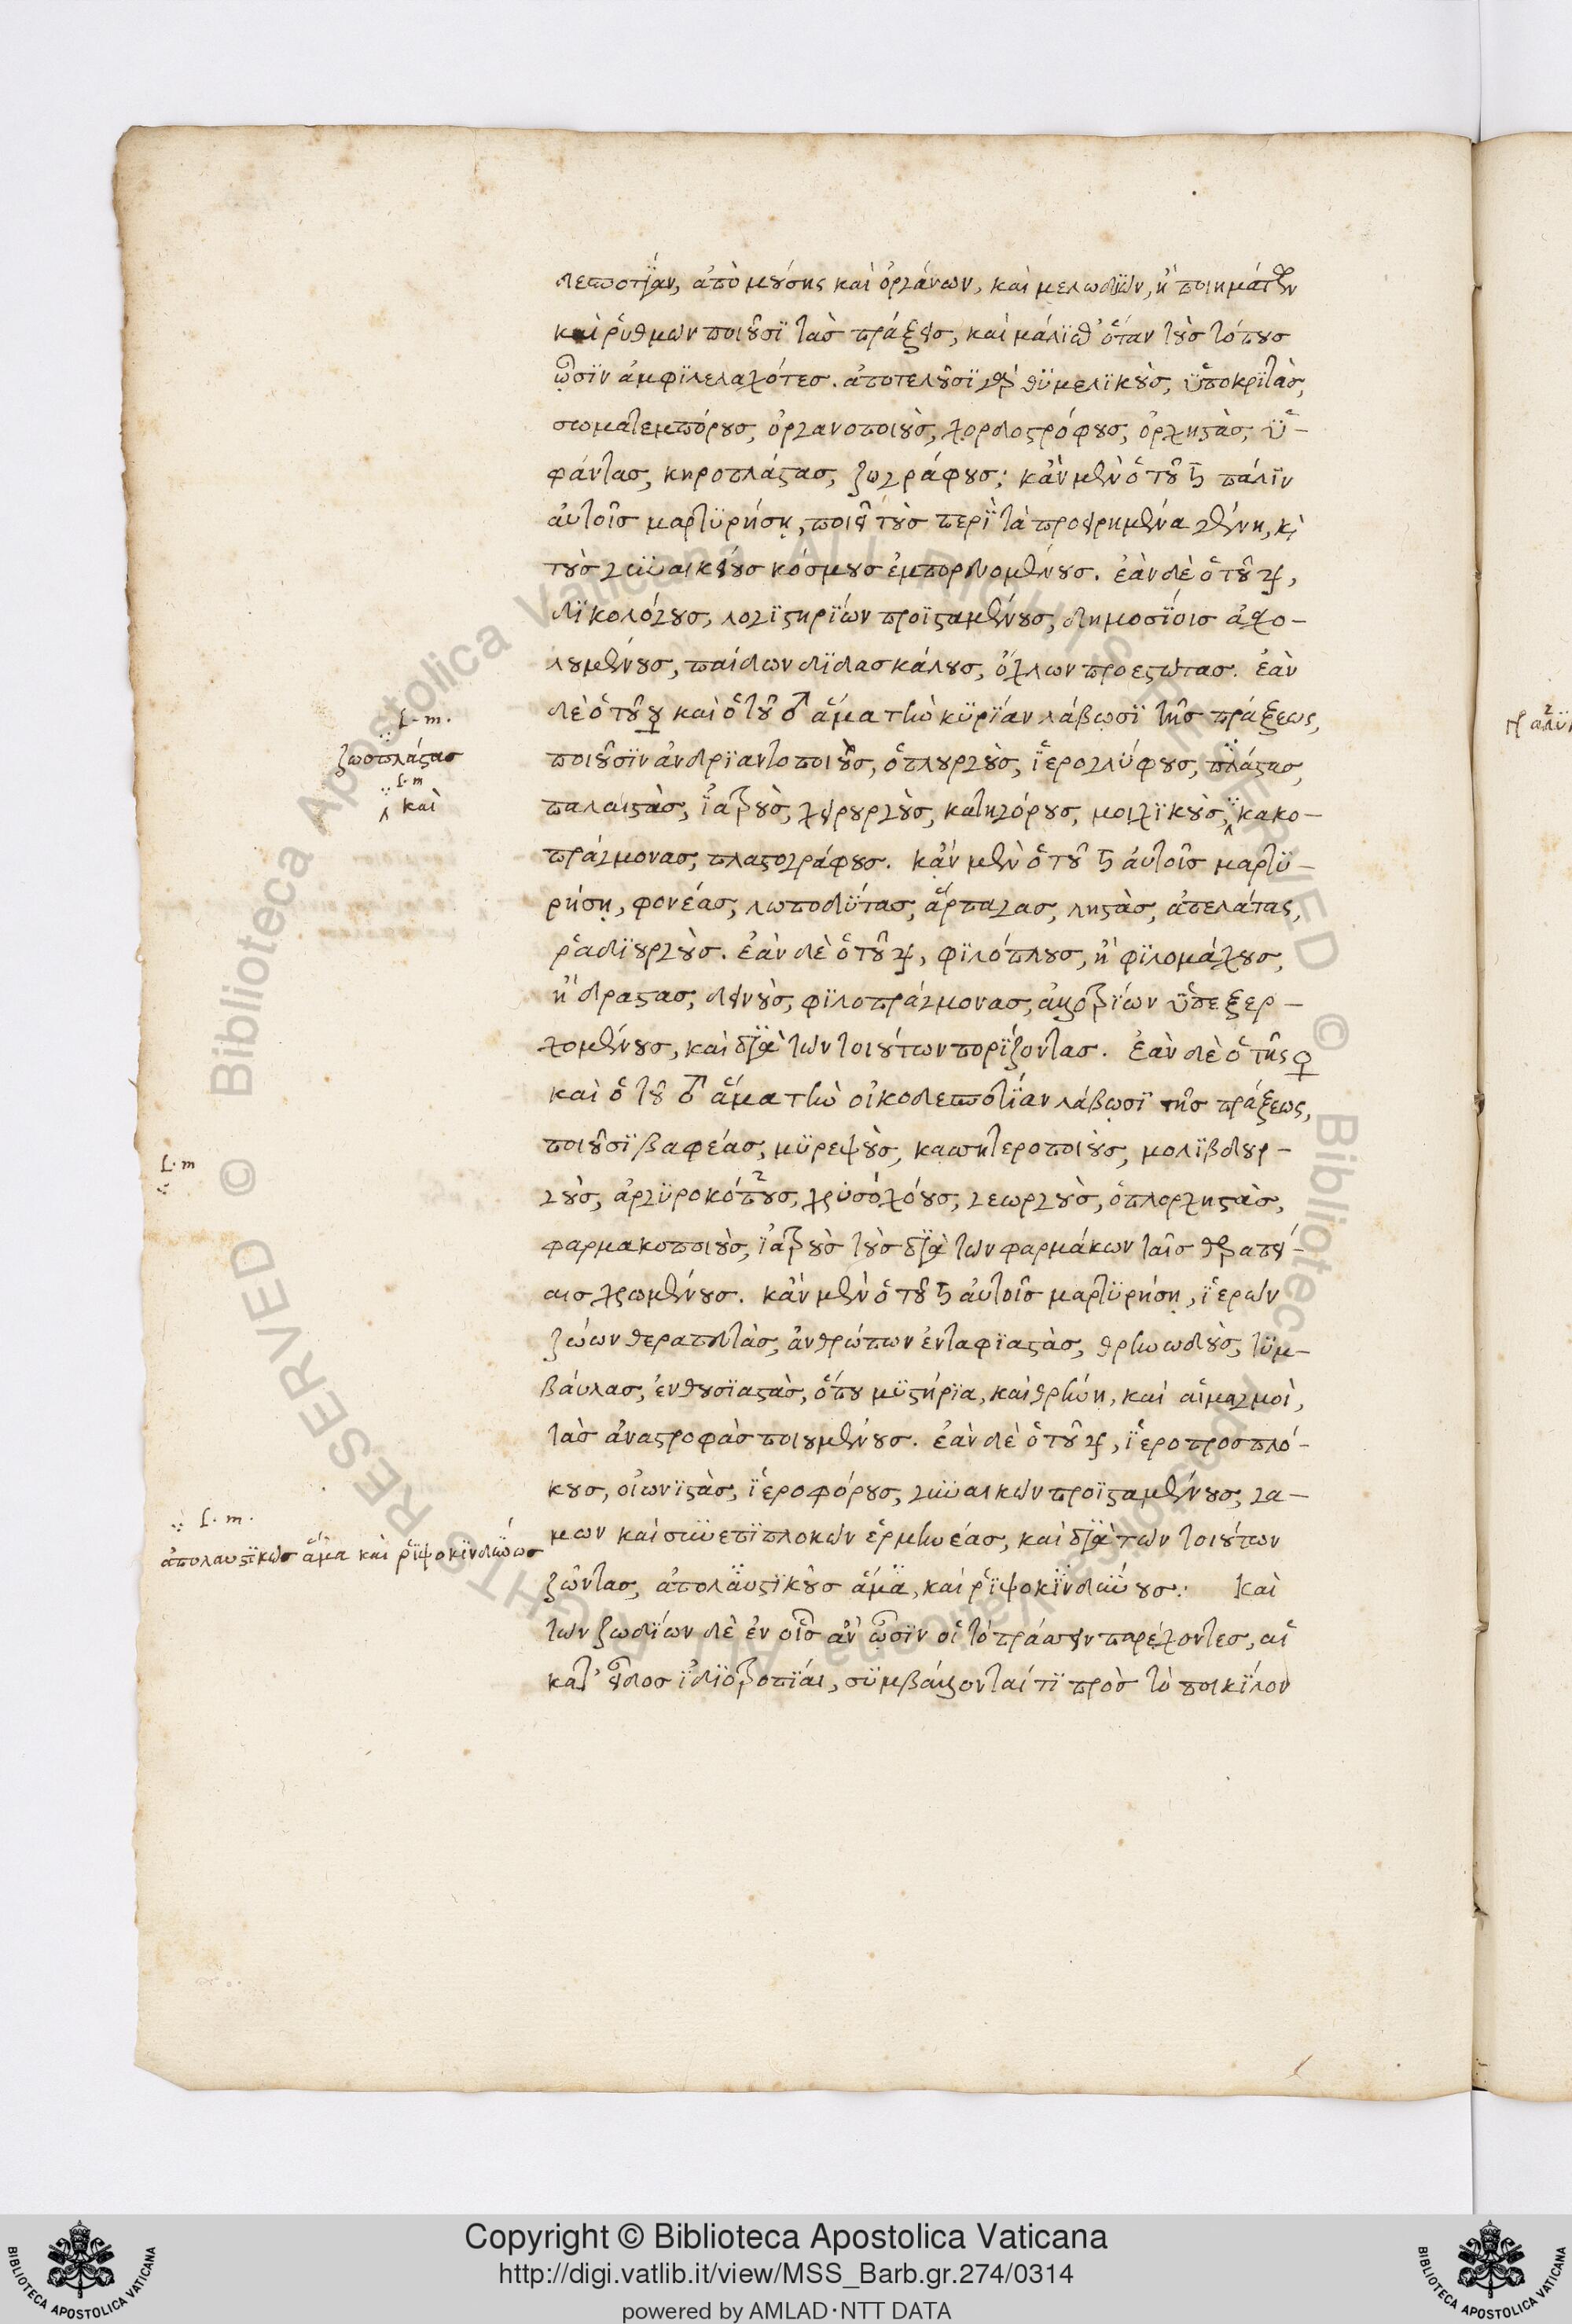 δεσποτίαν, ἀπὸ μούσης καὶ ὀργάνων, καὶ μελωδιῶν, ἢ ποιημάτων
καὶ ῥυθμῶν ποιοῦσι τὰς πράξεις, καὶ μάλισθ' ὅταν τοὺς τόπους
ὦσιν ἀμφιλελαχότες. ἀποτελοῦσι γὰρ θυμελικοὺς, ὑποκριτὰς,
σωματεμπόρους, ὀργανοποιοὺς, χορδοστρόφους, ὀρχηστὰς, ὑ-
φάντας, κηροπλάστας, ζωγράφους· κἂν μὲν ὁ τοῦ ♄ πάλιν
αὐτοῖς μαρτυρήσῃ, ποιεῖ τοὺς περὶ τὰ προειρημένα γένη, κὶ
τοὺς γυναικείους κόσμους ἐμπορευομένους. ἐὰν δὲ ὁ τοῦ ♃,
δικολόγους, λογιστηρίων προϊσταμένους, δημοσίοις ἀσχο-
λουμένους, παίδων διδασκάλους, ὄχλων προεστῶτας. ἐὰν
δὲ ὁ τοῦ ☿ καὶ ὁ τοῦ ♂ ἅμα τὴν κυρίαν λάβωσι τῆς πράξεως,
L. m.
ζωοπλάστας
ποιοῦσιν ἀνδριαντοποιοὺς, ὁπλουργοὺς, ἱερογλύφους, πλάστας,
L. m
καὶ
παλαιστὰς, ἰατροὺς, χειρουργοὺς, κατηγόρους, μοιχικοὺς, κακο-
πράγμονας, πλαστογράφους. κἂν μὲν ὁ τοῦ ♄ αὐτοῖς μαρτυ-
ρήσῃ, φονέας, λωποδύτας, ἅρπαγας, λῃστὰς, ἀπελάτας,
ῥαδιουργοὺς. ἐὰν δὲ ὁ τοῦ ♃, φιλόπλους, ἢ φιλομάχους,
ἢ δραστας, δεινοὺς, φιλοπράγμονας, ἀλλοτρίων ὑπεξερ-
χομένους, καὶ διὰ τῶν τοιούτων πορίζοντας. ἐὰν δὲ ὁ τῆς ♀
καὶ ὁ τοῦ ♂ ἅμα τὴν οἰκοδεσποτίαν λάβωσι τῆς πράξεως,
ποιοῦσι βαφέας, μυρεψοὺς, κασσητεροποιοὺς, μολιβδουρ-
L. m
γοὺς, ἀργυροκόπους, χρυσοχόους, γεωργοὺς, ὁπλορχηστὰς,
φαρμακοποιοὺς, ἰατροὺς τοὺς διὰ τῶν φαρμάκων ταῖς θεραπεί-
αις χρωμένους. κἂν μὲν ὁ τοῦ ♄ αὐτοῖς μαρτυρήσῃ, ἱερῶν
ζώων θεραπευτὰς, ἀνθρώπων ἐνταφιαστὰς, θρηνῳδοὺς, τυμ-
βαύλας, ἐνθουσιαστὰς, ὅπου μυστήρια, καὶ θρήνη, καὶ αἱμαγμοὶ,
τὰς ἀναστροφὰς ποιουμένους. ἐὰν δὲ ὁ τοῦ ♃, ἱεροπροσπλό-
κους, οἰωνιστὰς, ἱεροφόρους, γυναικῶν προϊσταμένους, γά-
L. m.
ἀπολαυστικῶς ἅμα καὶ ῥιψοκινδύνως
μων καὶ συνεπιπλοκῶν ἑρμηνέας, καὶ διὰ τῶν τοιούτων
ζῶντας, ἀπολαυστικοὺς ἅμα, καὶ ῥιψοκινδύνους. Καὶ
τῶν ζωδίων δὲ ἐν οἷς ἂν ὦσιν οἱ τὸ πράσσειν παρέχοντες, αἱ
κατ' εἶδος ἰδιοτροπίαι, συμβάλλονταί τι πρὸς τὸ ποικίλον
Copyright © Biblioteca Apostolica Vaticana
http://digi.vatlib.it/view/MSS_Barb.gr.274/0314
powered by AMLAD·NTT DATA